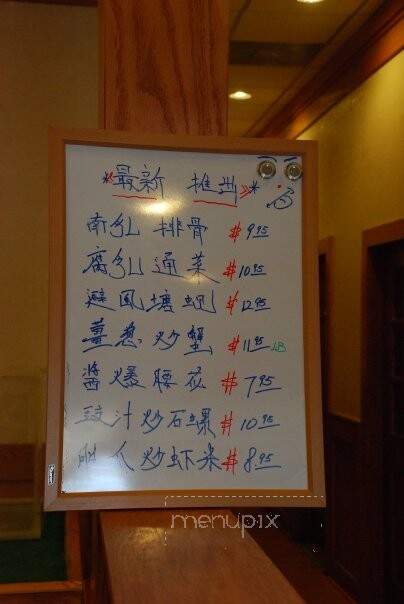 *最新 推出*
南乳 排骨 $9.95
腐乳 通菜 $10.95
避風塘蜆 $12.95
薑葱炒蟹 $11.95 LB
醬爆腰花 $7.95
豉汁炒石螺 $10.95
人炒虾米 $8.95
menupix